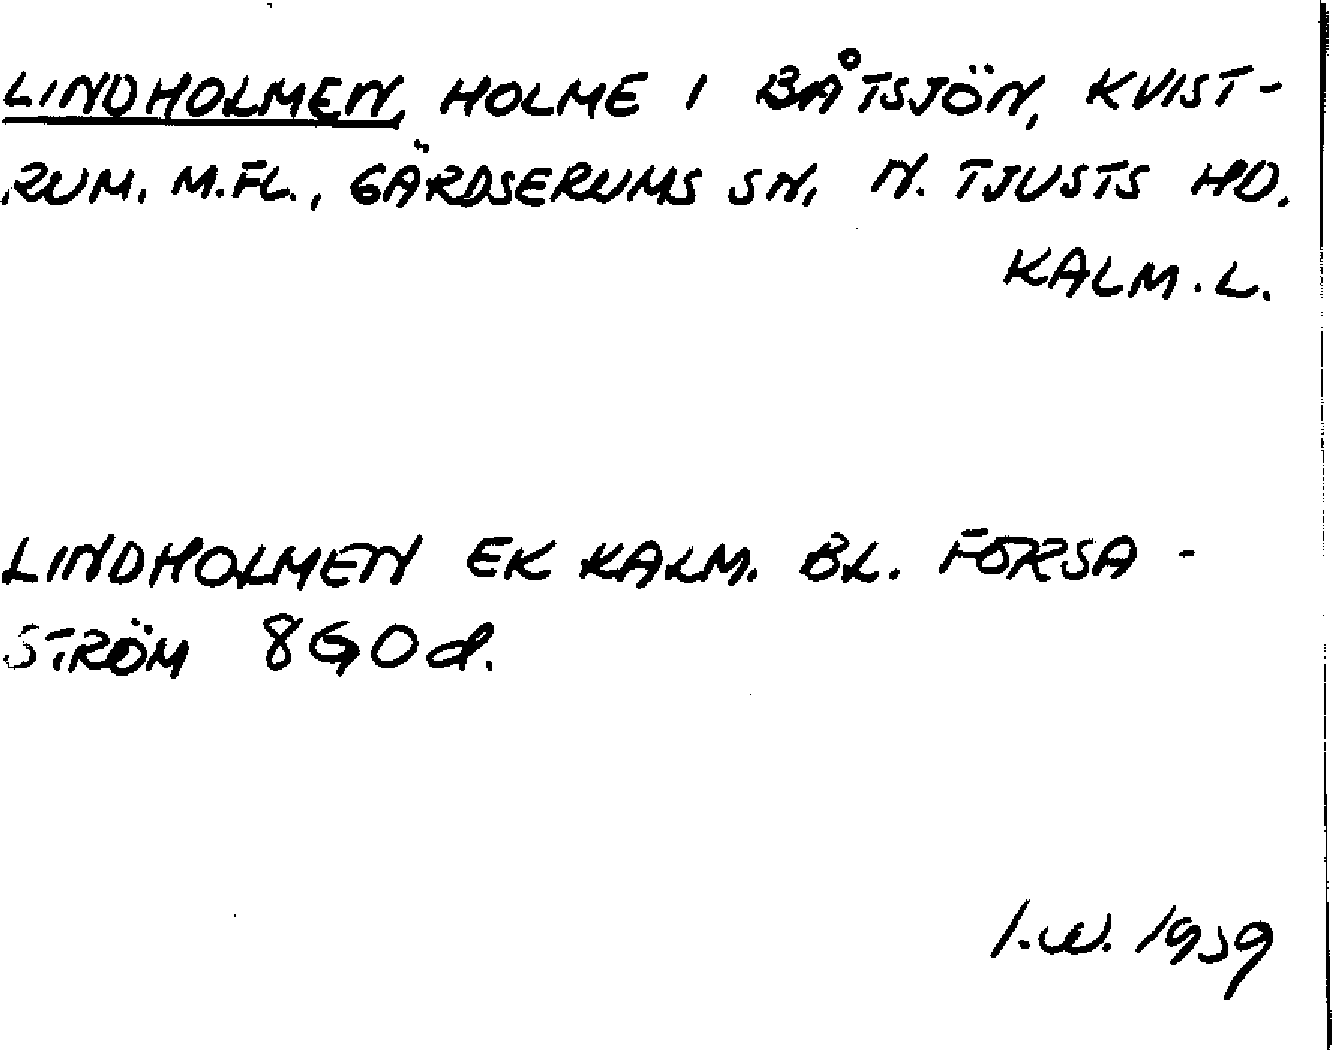 LINDHOLMEN, HOLME I BÅTSJÖN, KVIST-
RUM. M.FL., GÄRDSERUMS SN, N. TJUSTS HD.
KALM. L.
LINDHOLMEN EK KALM. BL. FORSA-
STRÖM 8GOd.
I.W. 1939